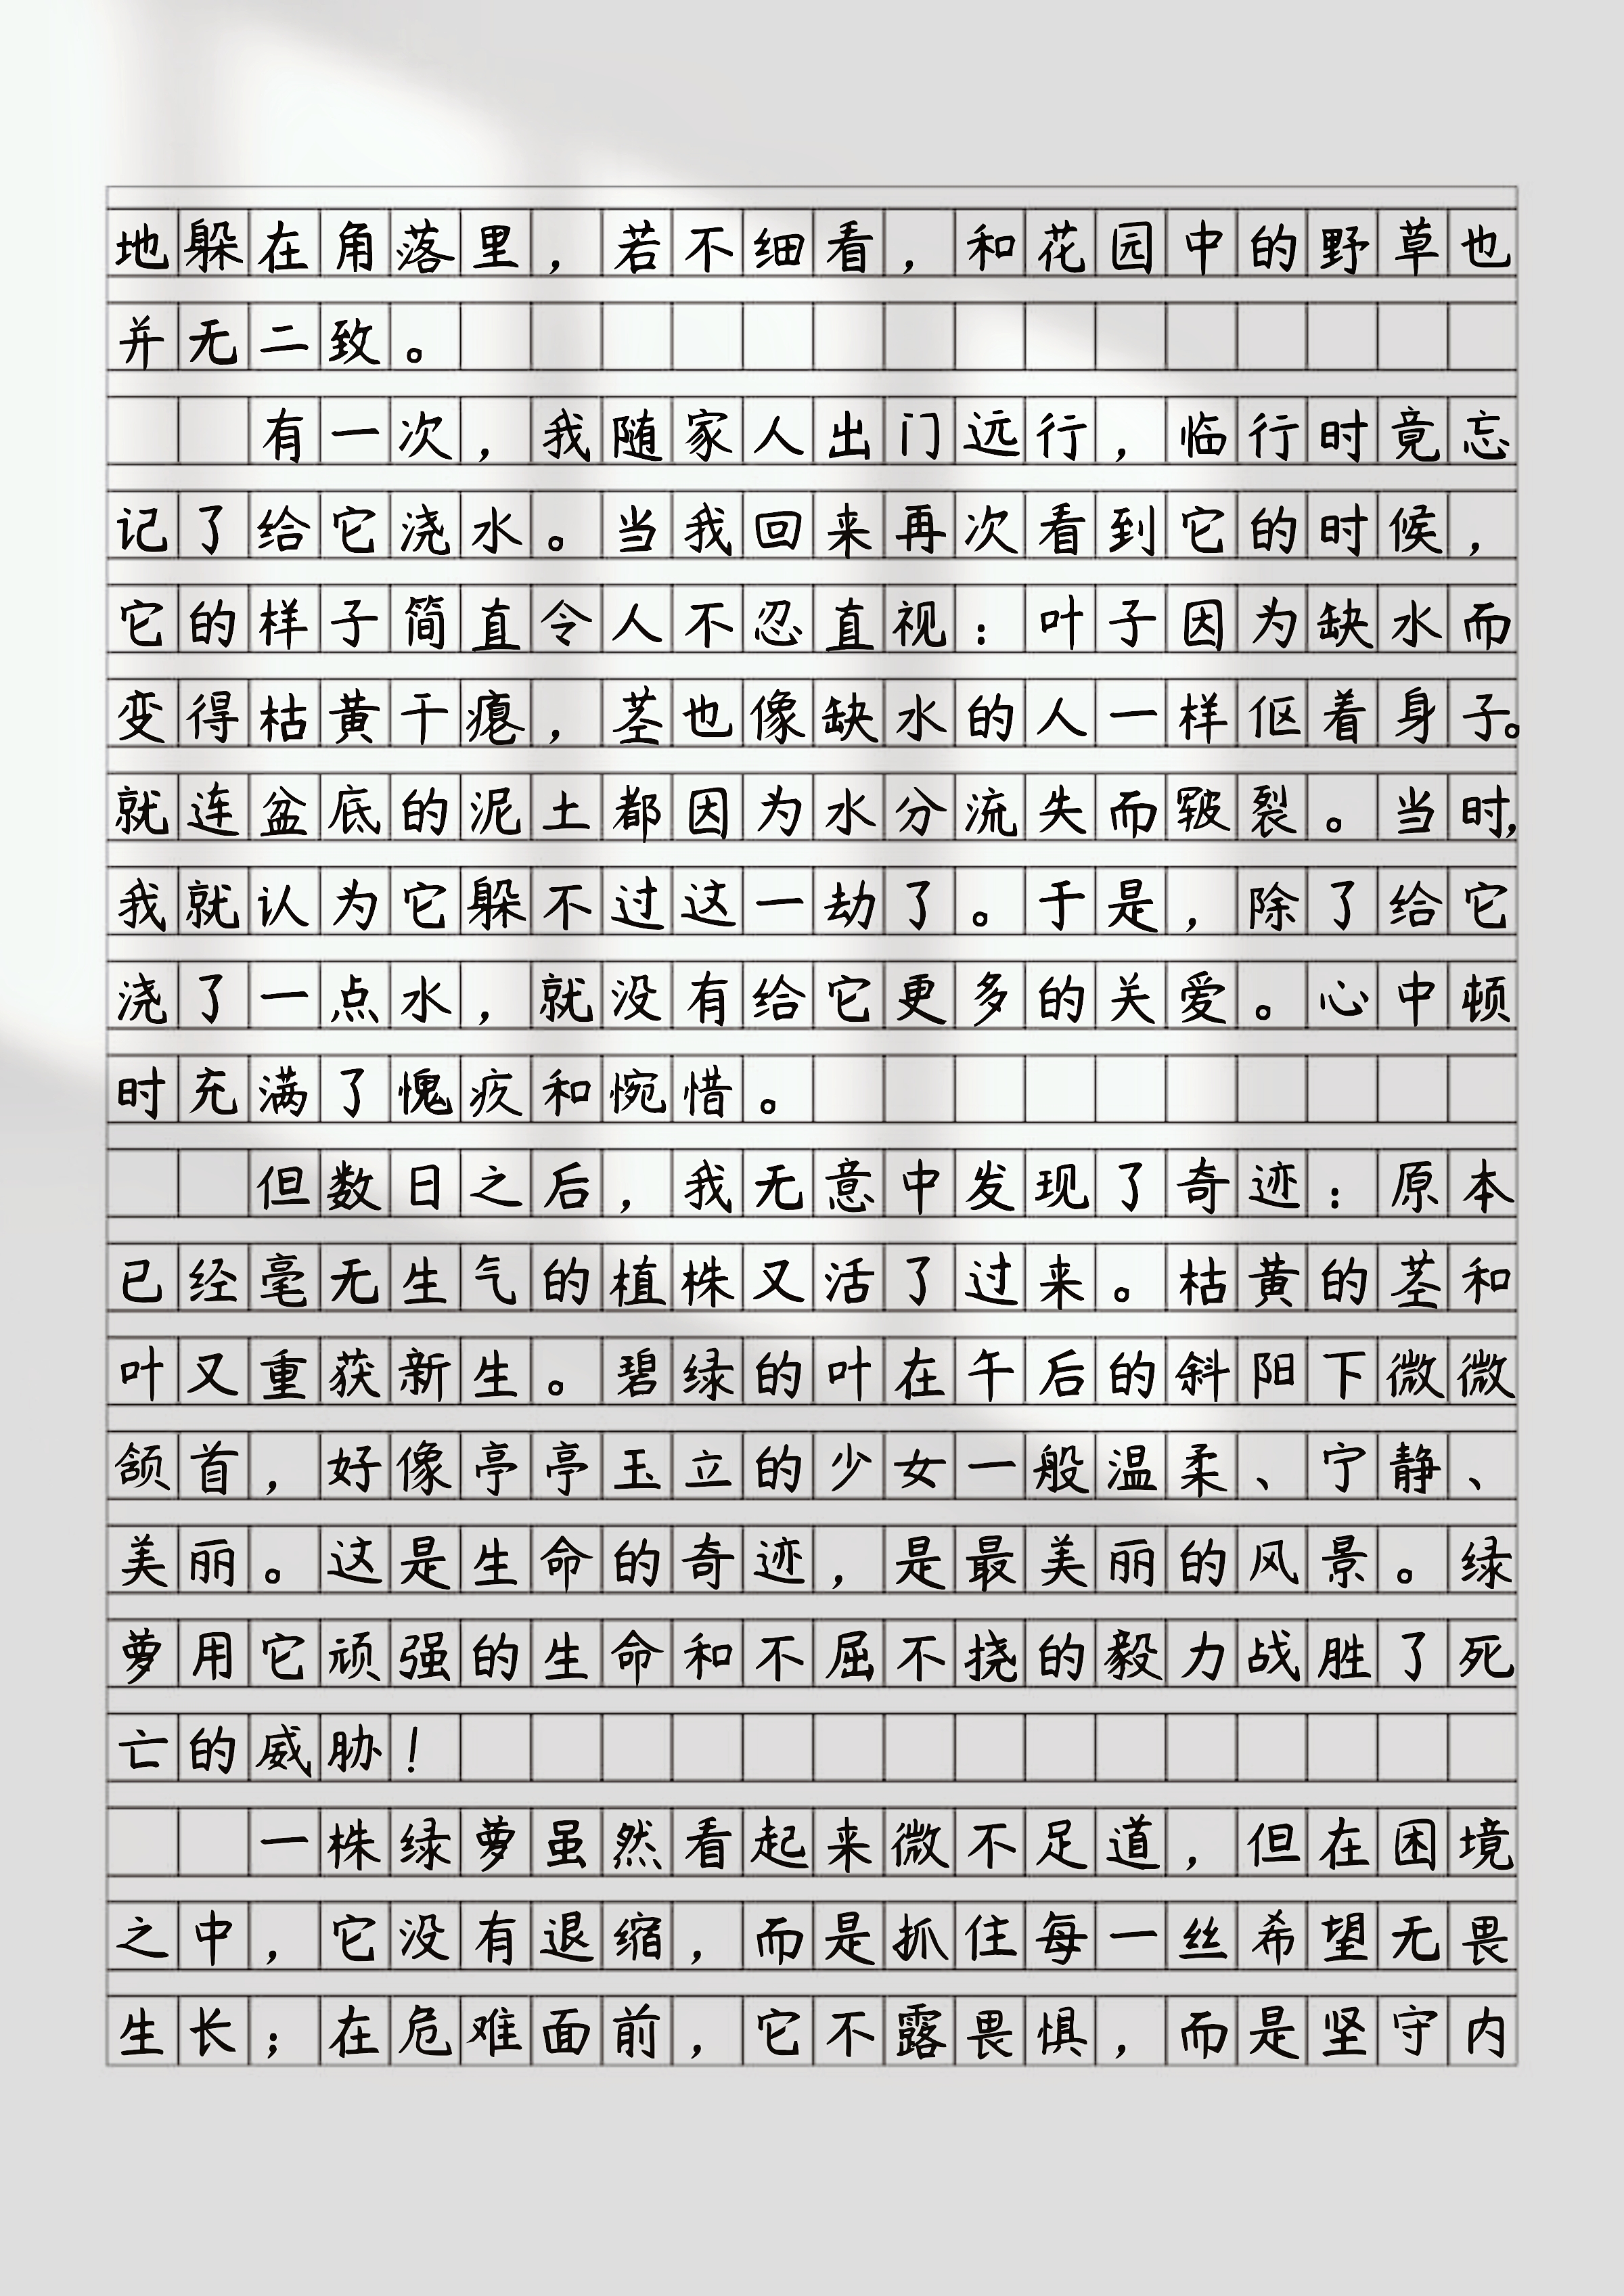 地躲在角落里，若不细看，和花园中的野草也
并无二致。
有一次，我随家人出门远行，临行时竟忘
记了给它浇水。当我回来再次看到它的时候，
它的样子简直令人不忍直视：叶子因为缺水而
变得枯黄干瘪，茎也像缺水的人一样伛着身子。
就连盆底的泥土都因为水分流失而皲裂。当时，
我就认为它躲不过这一劫了。于是，除了给它
浇了一点水，就没有给它更多的关爱。心中顿
时充满了愧疚和惋惜。
但数日之后，我无意中发现了奇迹：原本
已经毫无生气的植株又活了过来。枯黄的茎和
叶又重获新生。碧绿的叶在午后的斜阳下微微
颔首，好像亭亭玉立的少女一般温柔、宁静、
美丽。这是生命的奇迹，是最美丽的风景。绿
萝用它顽强的生命和不屈不挠的毅力战胜了死
亡的威胁！
一株绿萝虽然看起来微不足道，但在困境
之中，它没有退缩，而是抓住每一丝希望无畏
生长；在危难面前，它不露畏惧，而是坚守内